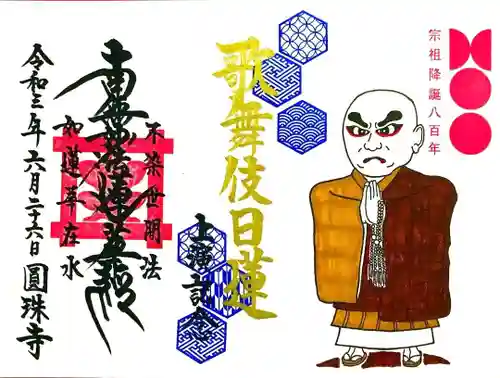 宗祖降誕八百年
歌舞伎日蓮
上演記念
不染世間法
南無妙法蓮華経
如蓮華在水
令和三年六月二十六日 圓珠寺